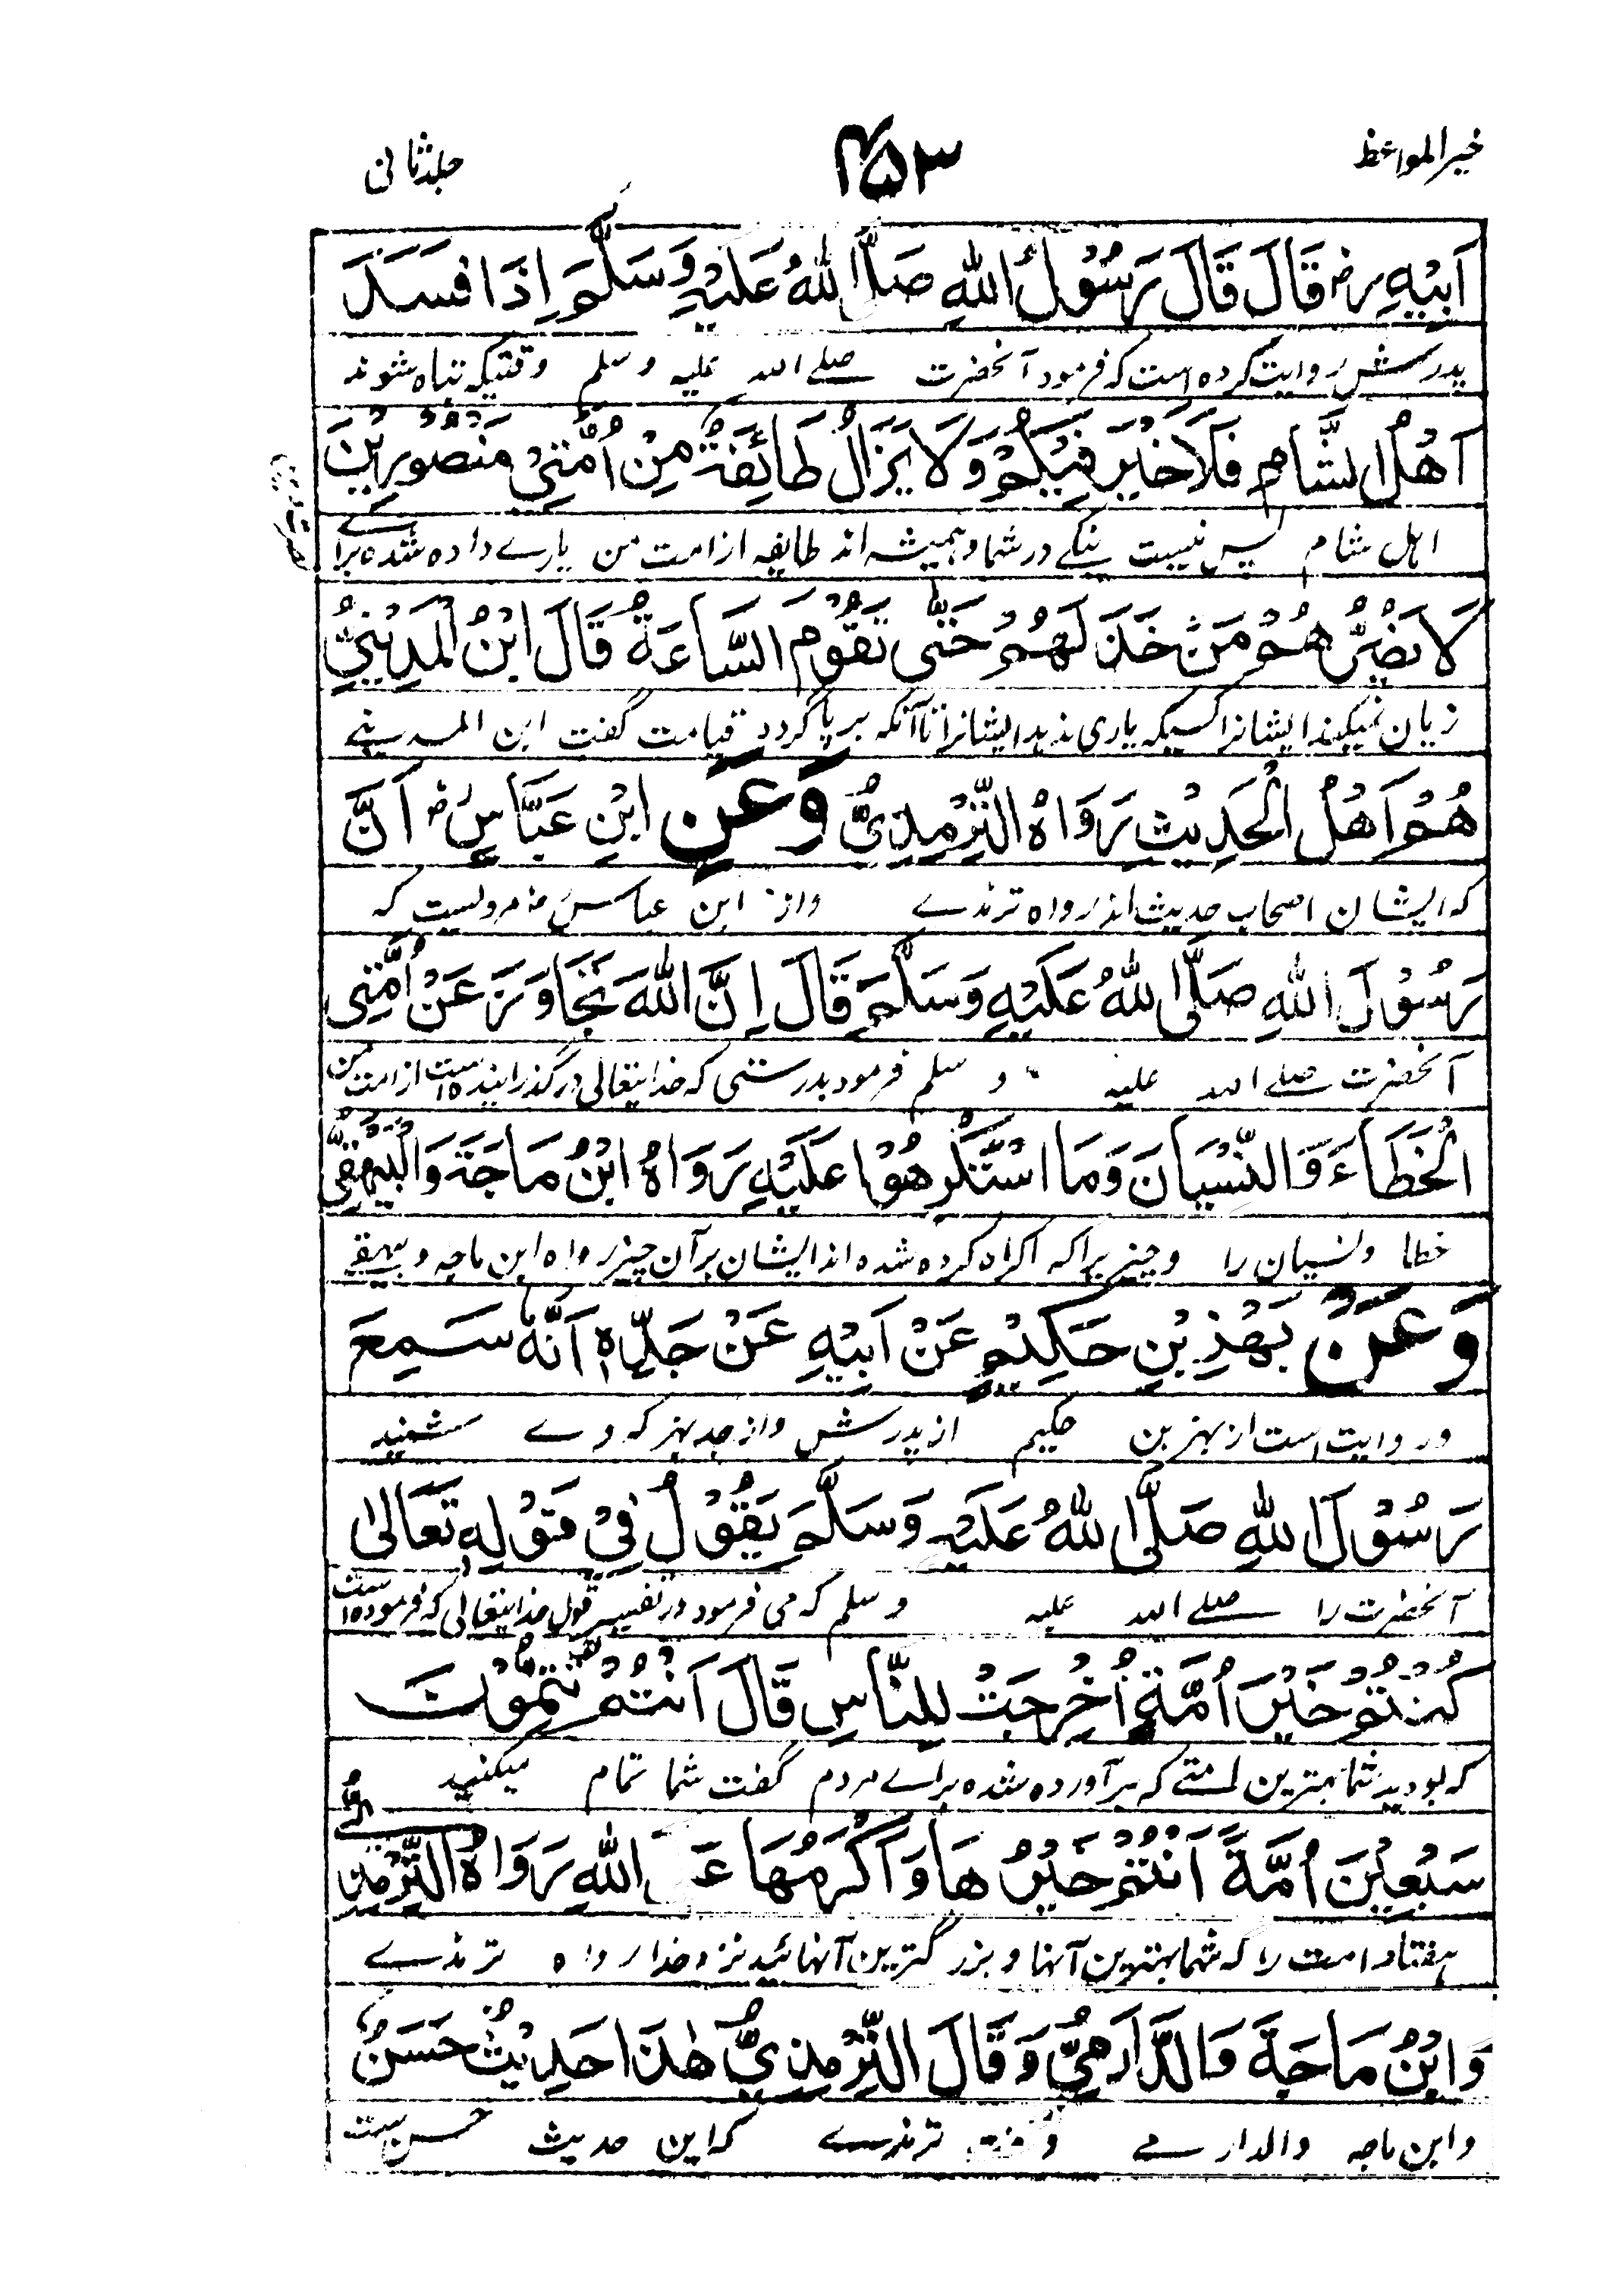 خیر المواعظ ۴۵۳ جلد ثانی
اَبِیْهِ رض قَالَ قَالَ رَسُوْلُ اللهِ صَلَّی اللهُ عَلَیْهِ وَسَلَّمَ اِذَا فَسَدَ
پدرش روایت کرده است که فرمود آنحضرت صلے الله علیه وسلم وقتیکه تباه شوند
اَهْلُ الشَّامِ فَلَا خَیْرَ فِیْکُمْ وَلَا یَزَالُ طَائِفَةٌ مِنْ اُمَّتِیْ مَنْصُوْرِیْنَ
اهل شام پس نیست نیکے در شما و همیشه اند طایفه از امت من یارے داده شده براے
لَا یَضُرُّهُمْ مَنْ خَذَلَهُمْ حَتّٰی تَقُوْمَ السَّاعَةُ قَالَ ابْنُ الْمَدِیْنِیِّ
زیان نمیکند ایشانرا کسیکه یاری ندید ایشانرا تا آنکه برپا گردد قیامت گفت ابن المدینے
هُمْ اَهْلُ الْحَدِیْثِ رَوَاهُ التِّرْمِذِیُّ وَعَنِ ابْنِ عَبَّاسٍ رض اَنَّ
که ایشان اصحاب حدیث اند رواه ترمذے واز ابن عباس رض مرویست که
رَسُوْلَ اللهِ صَلَّی اللهُ عَلَیْهِ وَسَلَّمَ قَالَ اِنَّ اللهَ تَجَاوَزَ عَنْ اُمَّتِی
آنحضرت صلے الله علیه وسلم فرمود بدرستی که خدایتعالی درگذرانیده است از امت من
الْخَطَاءَ وَالنِّسْیَانَ وَمَا اسْتُکْرِهُوْا عَلَیْهِ رَوَاهُ ابْنُ مَاجَةَ وَالْبَیْهَقِیُّ
خطا ونسیان را وچیزیرا که اکراه کرده شده اند ایشان بر آن چیز رواه ابن ماجه و بیهقے
وَعَنْ بَهْزِ بْنِ حَکِیْمٍ عَنْ اَبِیْهِ عَنْ جَدِّهٖ اَنَّهٗ سَمِعَ
و روایت است از بهز بن حکیم از پدرش واز جد بهز که وے شنید
رَسُوْلَ اللهِ صَلَّی اللهُ عَلَیْهِ وَسَلَّمَ یَقُوْلُ فِیْ قَوْلِهٖ تَعَالٰی
آنحضرت را صلے الله علیه وسلم که می فرمود در تفسیر قول خدایتعالی که فرموده است
کُنْتُمْ خَیْرَ اُمَّةٍ اُخْرِجَتْ لِلنَّاسِ قَالَ اَنْتُمْ تُتِمُّوْنَ
که بودید شما بهترین امتے که برآورده شده براے مردم گفت شما تمام میکنید
سَبْعِیْنَ اُمَّةً اَنْتُمْ خَیْرُهَا وَاَکْرَمُهَا عَلَی اللهِ رَوَاهُ التِّرْمِذِیُّ
هفتاد امت را که شما بهترین آنها و بزرگترین آنهائید نزد خدا رواه ترمذے
وَابْنُ مَاجَةَ وَالدَّارَمِیُّ وَقَالَ التِّرْمِذِیُّ هٰذَا حَدِیْثٌ حَسَنٌ
وابن ماجه والدارمے و گفت ترمذے که این حدیث حسن ست